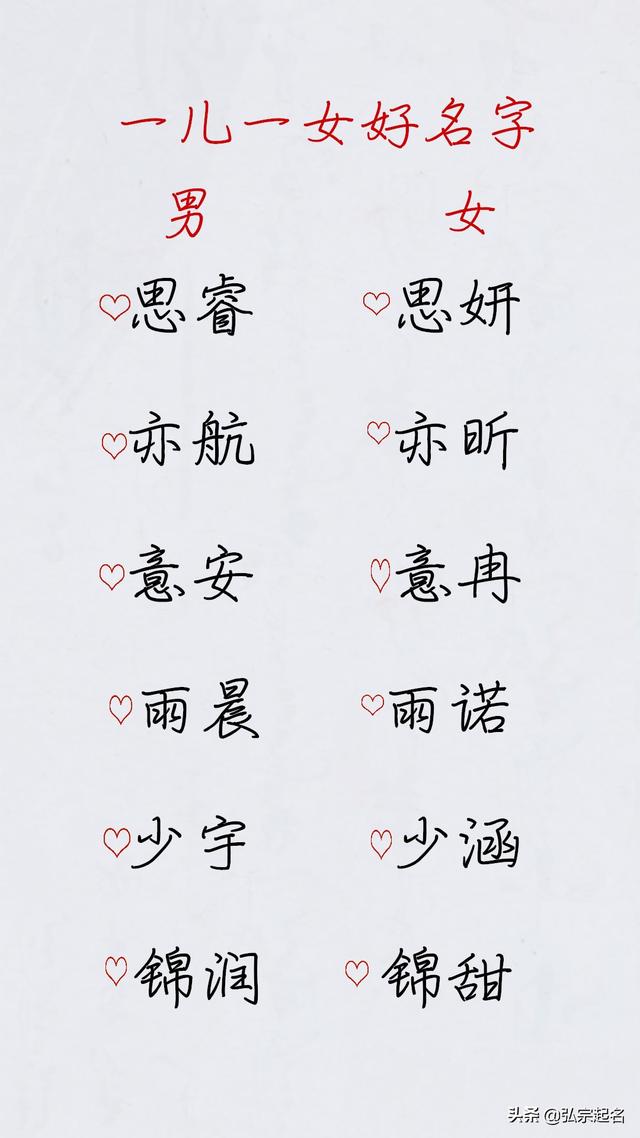 一儿一女好名字
男 女
♡思睿 ♡思妍
♡亦航 ♡亦昕
♡意安 ♡意冉
♡雨晨 ♡雨诺
♡少宇 ♡少涵
♡锦润 ♡锦甜
头条 @弘宗起名